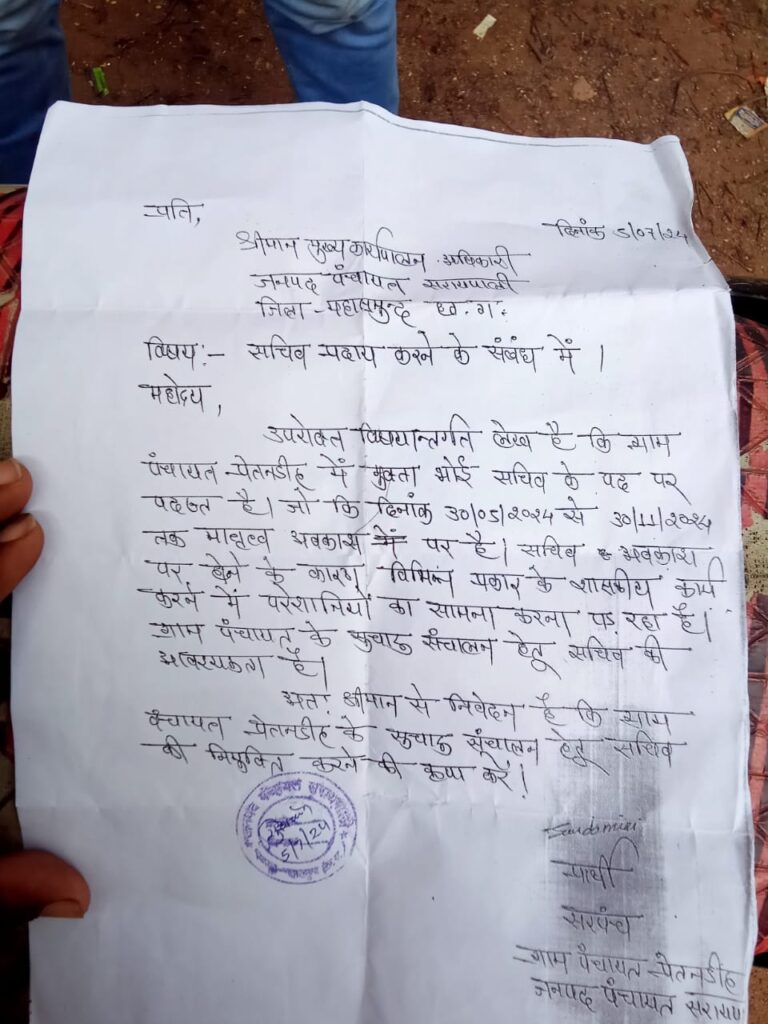 प्रति,
दिनांक 5/07/24
श्रीमान मुख्य कार्यपालन अधिकारी
जनपद पंचायत सरायपाली
जिला - महासमुन्द छ. ग.
विषय:- सचिव प्रदाय करने के संबंध में ।
महोदय,
उपरोक्त विषयान्तर्गत लेख है कि ग्राम
पंचायत - प्रेतनडीह में मुक्ता भोई सचिव के पद पर
पदस्त है। जो कि दिनांक 30/05/2024 से 30/11/2024
तक मातृत्व अवकाश में पर है। सचिव अवकाश
पर होने के कारण विभिन्न प्रकार के शासकीय कार्य
करने में परेशानियों का सामना करना पड रहा है।
ग्राम पंचायत के सुचारु संचालन हेतू सचिव की
आवश्यकता है।
अतः श्रीमान से निवेदन है कि ग्राम
पंचायत प्रेतनडीह के सुचारु संचालन हेतू सचिव
की नियुक्ति करने की कृपा करें।
जनपद पंचायत सरायपाली
5/7/24
Saudamini
प्रार्थी
सरपंच
ग्राम पंचायत - प्रेतनडीह
जनपद पंचायत सराय